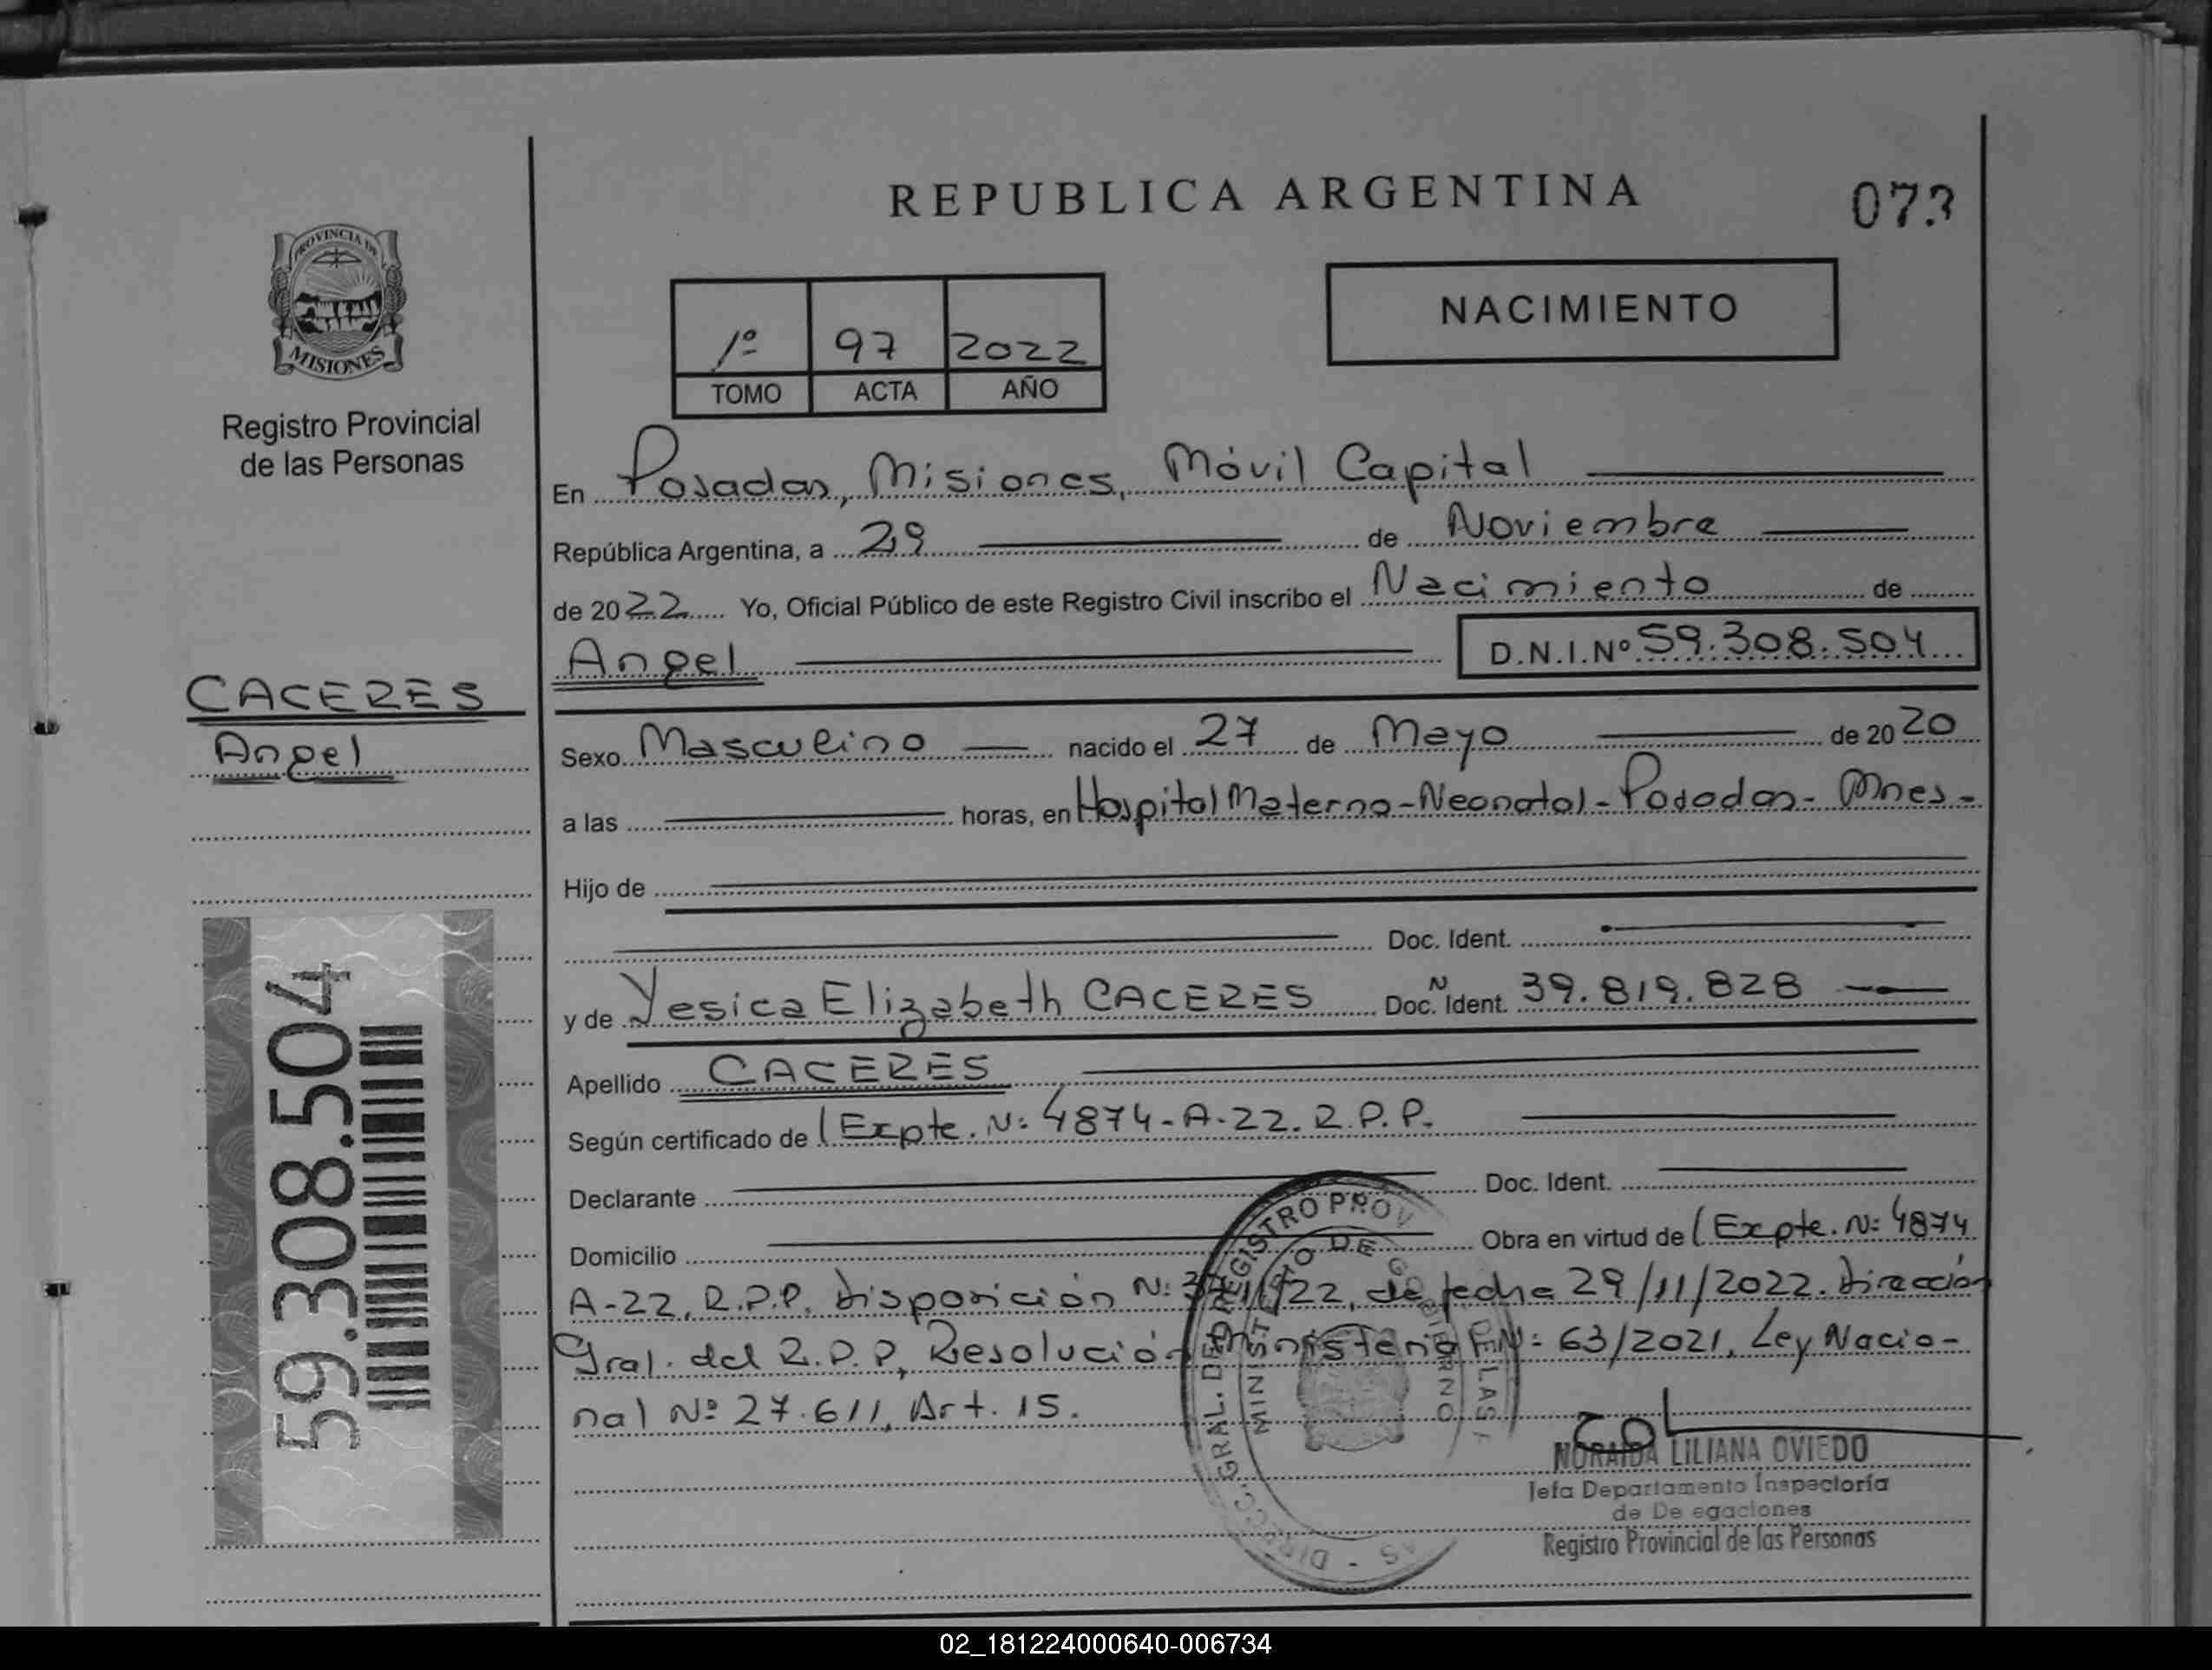 REPUBLICA ARGENTINA
073
PROVINCIA DE
MISIONES
Registro Provincial
de las Personas
1º 97 2022
TOMO ACTA AÑO
NACIMIENTO
En Posadas, Misiones, Móvil Capital
República Argentina, a 29 de Noviembre
de 2022 Yo, Oficial Público de este Registro Civil inscribo el Nacimiento de
Angel D.N.I.Nº 59.308.504
CACERES
Angel
Sexo Masculino nacido el 27 de Mayo de 2020
a las horas, en Hospital Materno-Neonatal-Posadas- Mnes-
Hijo de
Doc. Ident.
y de Yesica Elizabeth CACERES Doc. Ident. N 39.819.828
Apellido CACERES
Según certificado de (Expte. N: 4874-A-22. R.P.P.
Declarante Doc. Ident.
Domicilio Obra en virtud de (Expte. N: 4874
A-22, R.P.P. Disposición N: /22, de fecha 29/11/2022. Dirección
Gral. del R.P.P, Resolución Ministerial N: 63/2021, Ley Nacio-
nal Nº 27.611, Art. 15.
59.308.504
DIRECC. GRAL. DEL REGISTRO PROV DE LAS
MINISTERIO DE GOBIERNO
NORAIDA LILIANA OVIEDO
Jefa Departamento Inspectoría
de De egaciones
Registro Provincial de las Personas
02_181224000640-006734